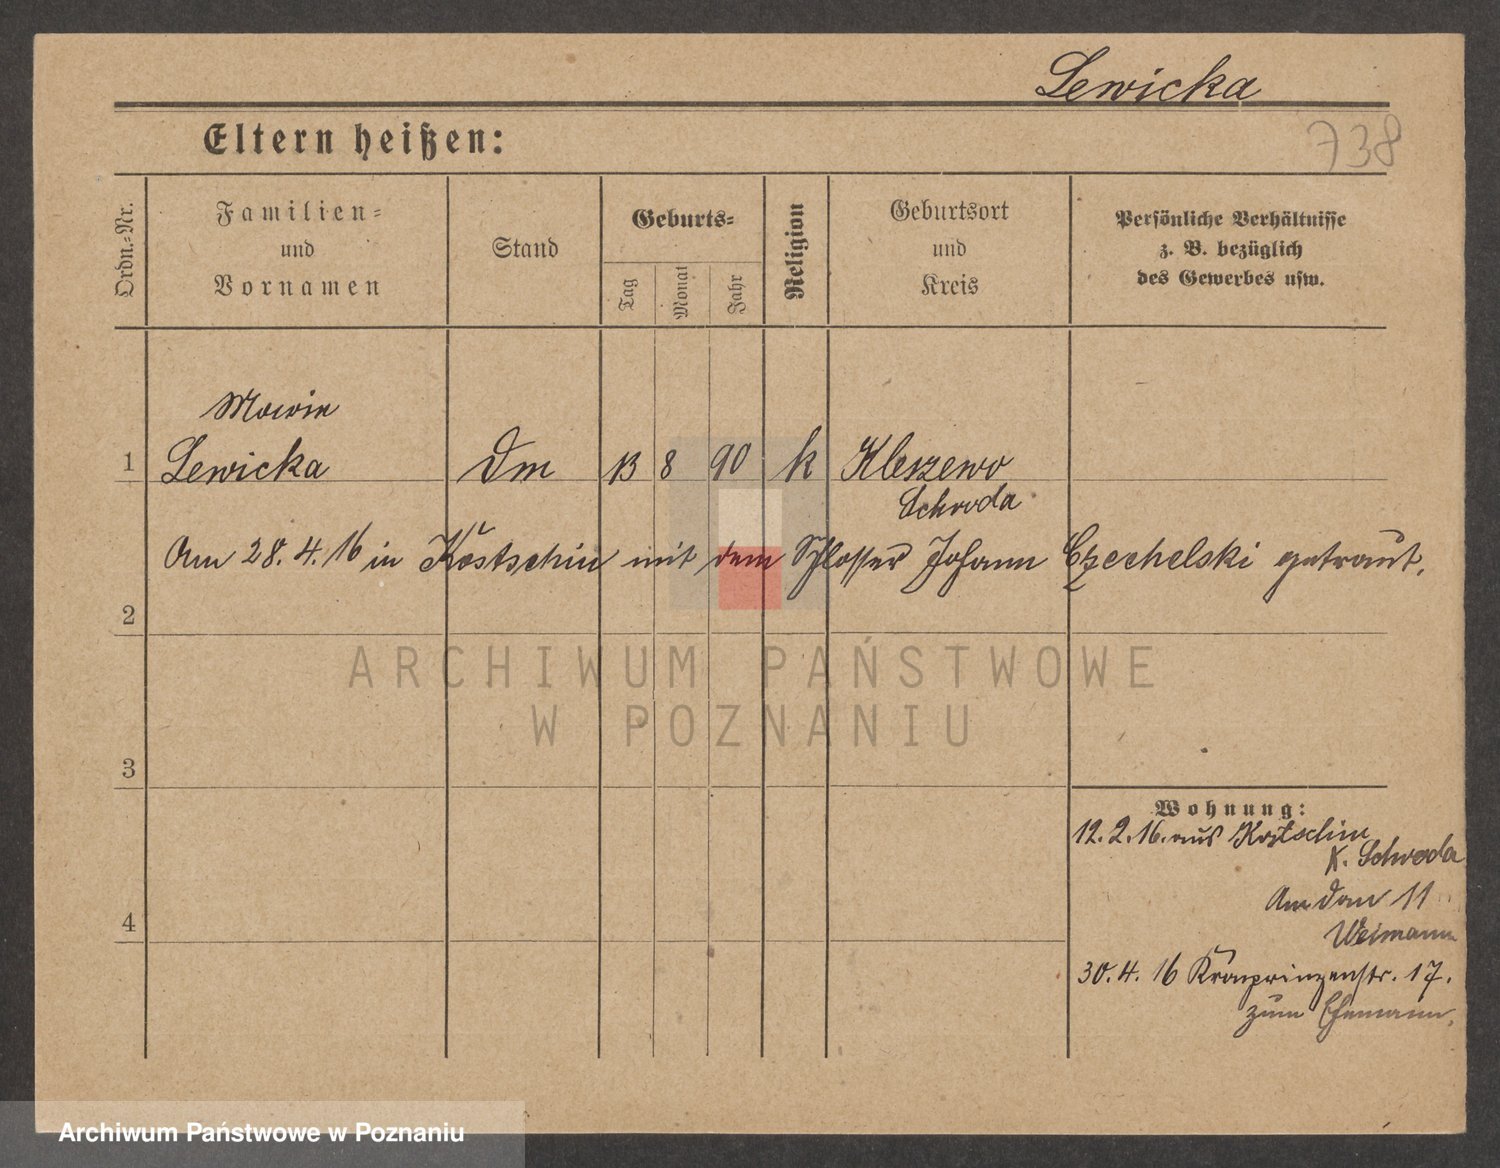 Lewicka
738
Eltern heißen:
Ordn.-Nr.
Familien-
und
Vornamen
Stand
Geburts-
Tag
Monat
Jahr
Religion
Geburtsort
und
Kreis
Persönliche Verhältnisse
z. B. bezüglich
des Gewerbes usw.
Marie
1 Lewicka Dm 13 8 90 k Kleszewo
Schroda
Am 28. 4. 16 in Kostschin mit dem Schlosser Johann Czechelski getraut.
2
ARCHIWUM PAŃSTWOWE
W POZNANIU
3
Wohnung:
12. 2. 16. aus Kostschin
K. Schroda
Am Dom 11
Weimann
4
30. 4. 16 Kronprinzenstr. 17.
zum Ehemann.
Archiwum Państwowe w Poznaniu